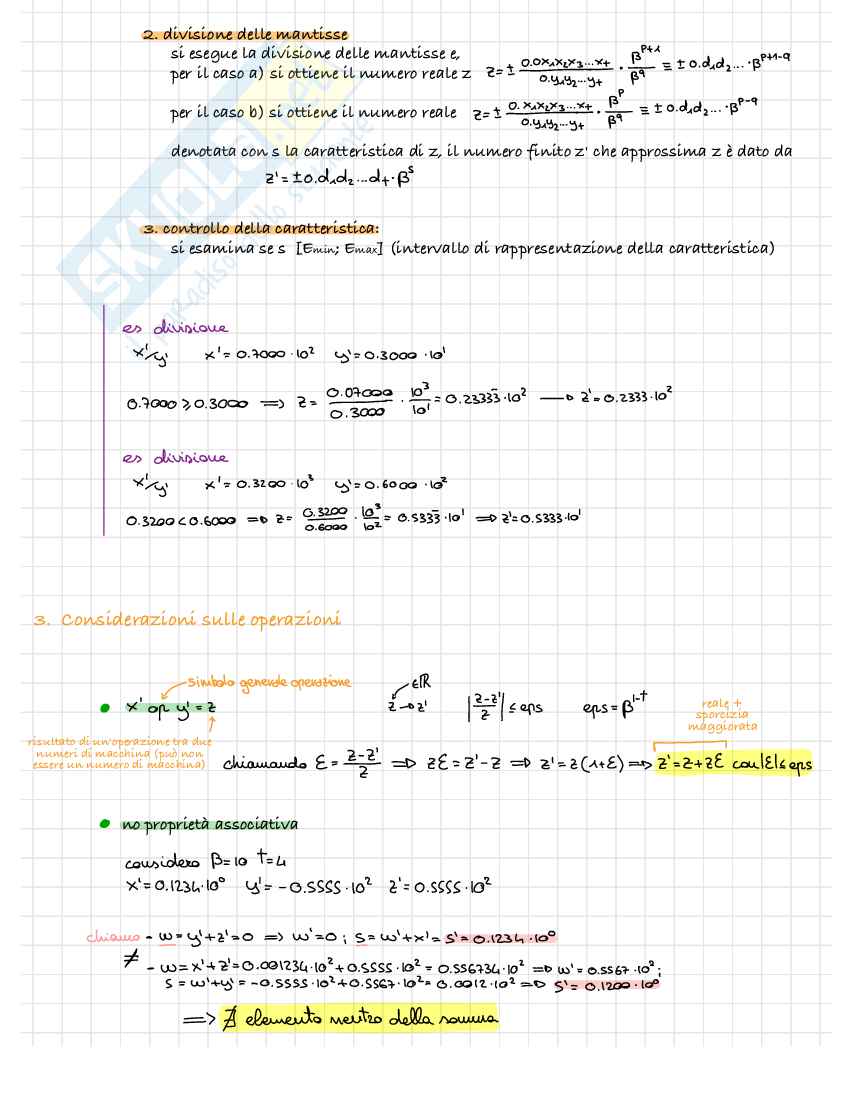 2. divisione delle mantisse
si esegue la divisione delle mantisse e,
per il caso a) si ottiene il numero reale z z = ± 0.0x₁x₂x₃...x_t / 0.y₁y₂...y_t · β^(p+1) / β^q ≡ ± 0.d₁d₂... · β^(p+1-q)
per il caso b) si ottiene il numero reale z = ± 0.x₁x₂x₃...x_t / 0.y₁y₂...y_t · β^p / β^q ≡ ± 0.d₁d₂... · β^(p-q)
denotata con s la caratteristica di z, il numero finito z' che approssima z è dato da
z' = ± 0.d₁d₂...d_t · β^s
3. controllo della caratteristica:
si esamina se s [Emin; Emax] (intervallo di rappresentazione della caratteristica)
es divisione
x'/y' x' = 0.7000 · 10² y' = 0.3000 · 10¹
0.7000 ⩾ 0.3000 ⟹ z = 0.07000 / 0.3000 · 10³ / 10¹ = 0.23333̄ · 10² → z' = 0.2333 · 10²
es divisione
x'/y' x' = 0.3200 · 10³ y' = 0.6000 · 10²
0.3200 < 0.6000 ⟹ z = 0.3200 / 0.6000 · 10³ / 10² = 0.5333̄ · 10¹ ⟹ z' = 0.5333 · 10¹
3. Considerazioni sulle operazioni
simbolo generale operazione
• x' op y' = z
risultato di un'operazione tra due
numeri di macchina (può non
essere un numero di macchina)
∈ℝ
z → z' |z-z' / z| ≤ eps eps = β^(1-t)
reale +
sporcizia
maggiorata
chiamando ε = z-z' / z ⟹ zε = z'-z ⟹ z' = z(1+ε) ⟹ z' = z+zε con |ε| ≤ eps
• no proprietà associativa
considero β=10 t=4
x' = 0.1234 · 10⁰ y' = -0.5555 · 10² z' = 0.5555 · 10²
chiamo - w = y'+z' = 0 ⟹ w' = 0 ; s = w'+x' = s' = 0.1234 · 10⁰
≠
- w = x'+z' = 0.001234 · 10² + 0.5555 · 10² = 0.556734 · 10² ⟹ w' = 0.5567 · 10² ;
s = w'+y' = -0.5555 · 10² + 0.5567 · 10² = 0.0012 · 10² ⟹ s' = 0.1200 · 10⁰
⟹ ∄ elemento neutro della somma
SKUOLA.net
il paradiso dello studente